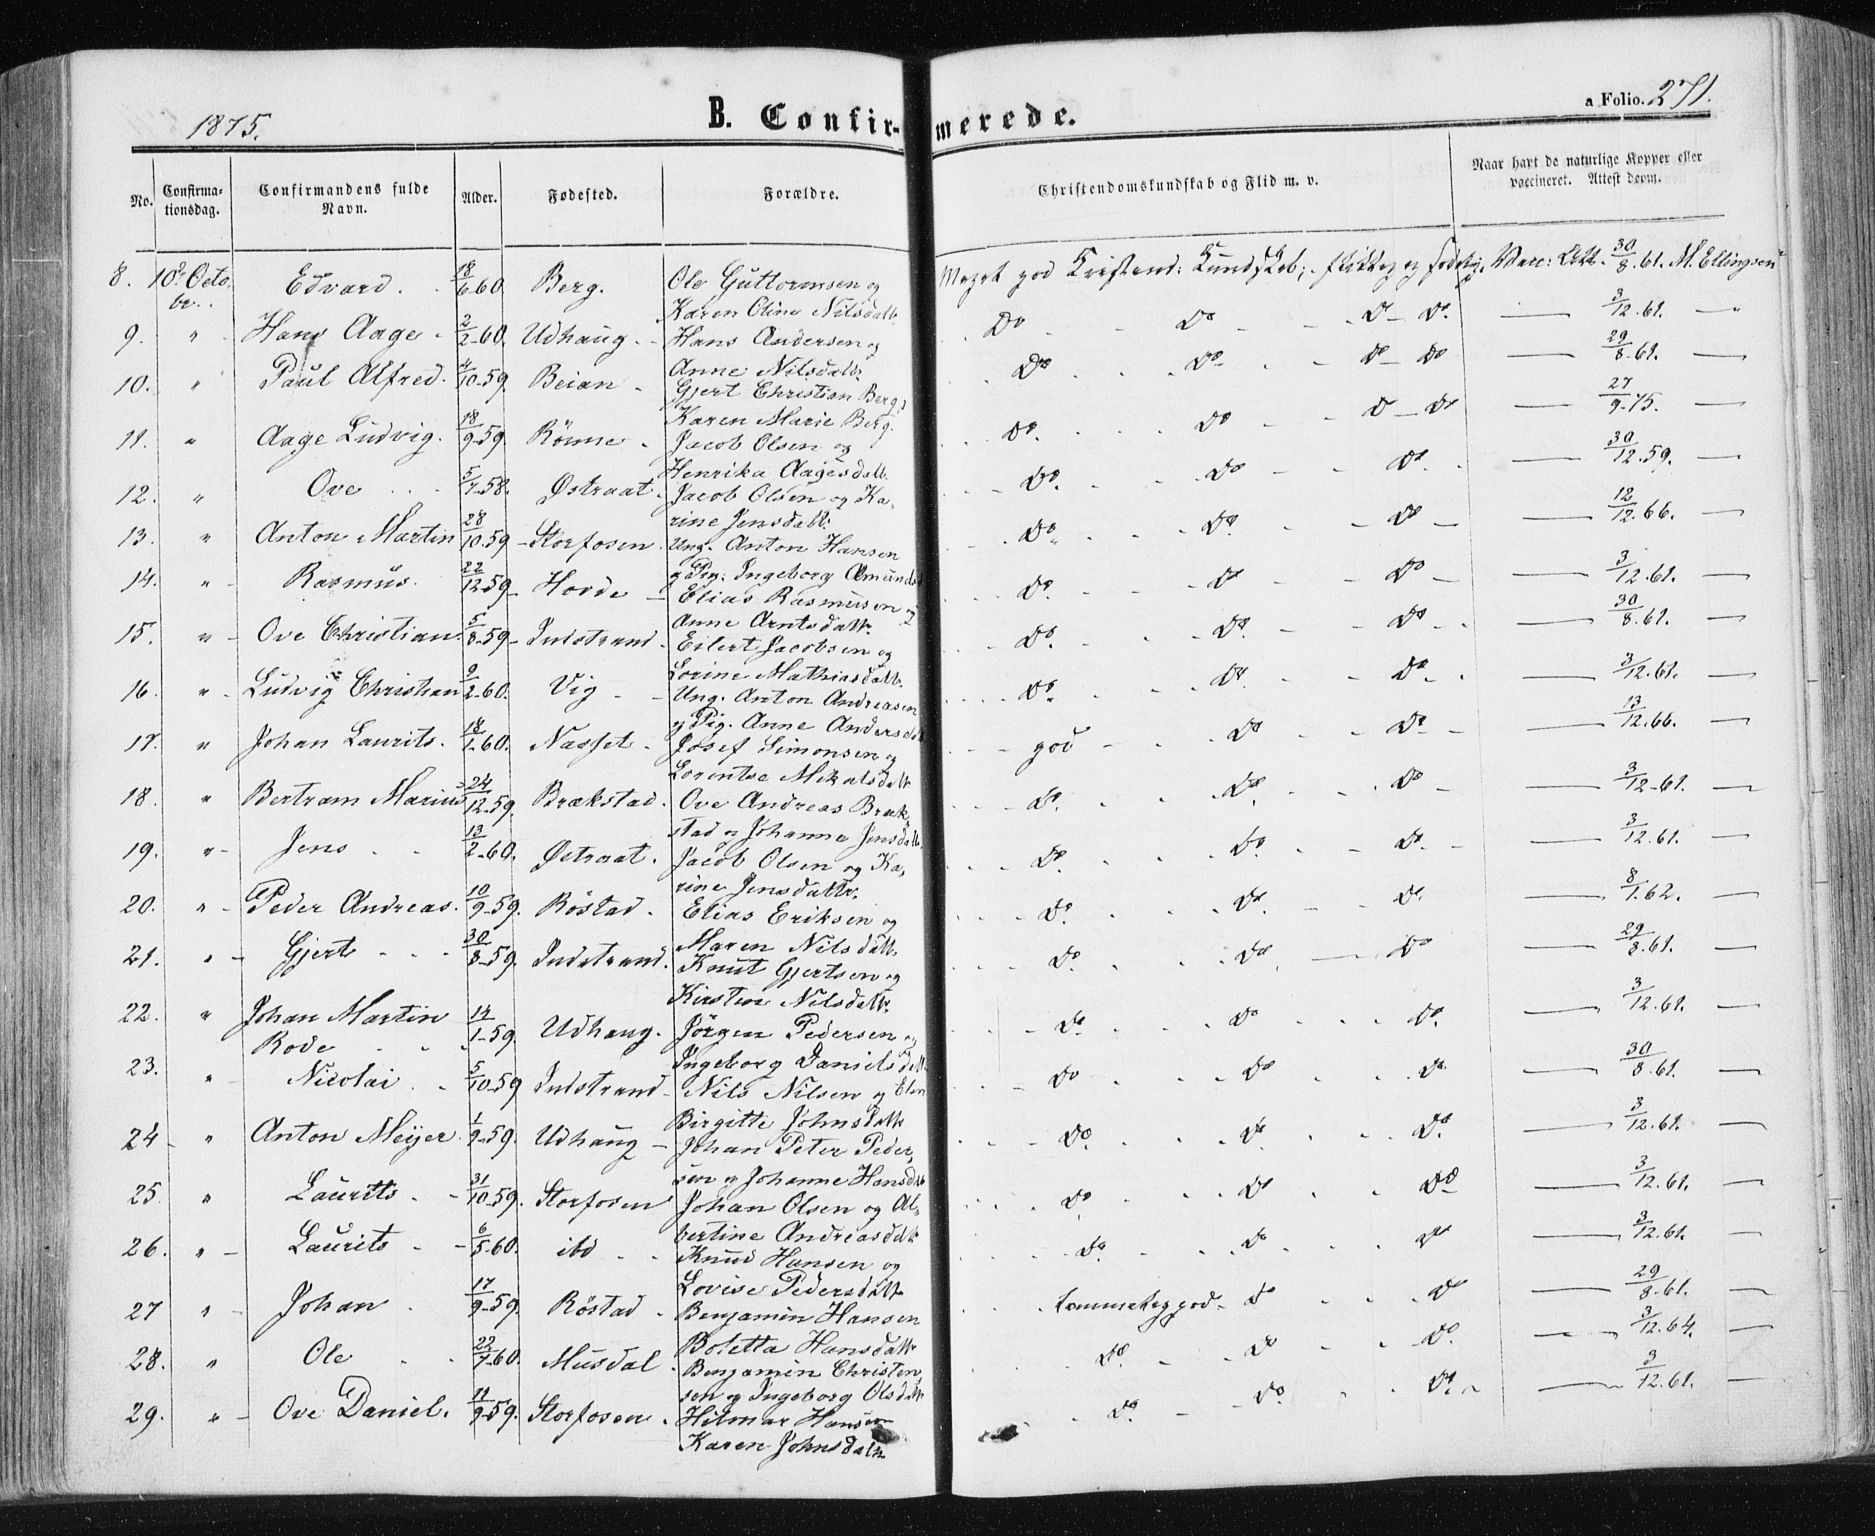 1875.
B. Confirmerede.
a Folio. 271.
No.
Confirmationsdag.
Confirmandens fulde Navn.
Alder.
Fødested.
Forældre.
Christendomskundskab og Flid m. v.
Naar havt de naturlige Kopper eller vaccineret. Attest derom.
8. 10de Octobr. Edvard 18/6-60 Berg. Ole Guttormsen og Karen Eline Nilsdattr. Meget god Kristend: Kundskab; flittig og sedelig. Vacc: Att. 30/8.61. M. Ellingsen
9. " Hans Aage 2/2-60. Udhaug Hans Andersen og Anne Nilsdattr Do Do Do Do. 3/12.61. "
10. " Paul Alfred. 4/10-59. Beian Gjert Christian Berg, Karen Marie Berg. Do Do Do Do 29/8.61.
11. " Aage Ludvig. 18/9-59. Rönne Jacob Olsen og Henrika Aagesdattr Do. Do Do Do 27/9.75.
12. " Ove 5/7-58. Østraat Jacob Olsen og Karine Jensdattr. Do. Do Do. 30/12.59.
13. " Anton Martin 28/10.59 Storfosen Ung. Anton Hansen og Pig. Ingeborg Amundsd. Do. Do Do 12/12.66.
14. " Rasmus. 22/12-59 Hovde Elias Rasmussen og Anne Arntsdattr. Do. Do Do 3/12.61.
15. " Ove Christian 5/8-59 Indstrand Eilert Jacobsen og Lorine Mathiasdattr. Do. Do. Do 30/8.61.
16. " Ludvig Christian 9/2-60. Vig Ung. Anton Andreasen og Pig. Anne Andersdattr Do. Do. Do. 3/12.61.
17. " Johan Laurits. 18/1-60. Nasset Josef Simonsen og Lorentse Mikalsdattr god Do Do 13/12.66.
18. " Bertram Marius 24/12-59. Brækstad. Ove Andreas Brækstad og Johanna Jensdattr. Do. Do Do 3/12-61.
19. " Jens 13/2-60. Østraat. Jacob Olsen og Karine Jensdattr. Do. Do. Do. 3/12.61.
20. " Peder Andreas. 10/9-59. Röstad. Elias Eriksen og Maren Nilsdattr. Do. Do. Do. 8/1.62.
21. " Gjert 30/8-59. Indstrand. Knut Gjertsen og Kirsten Nilsdattr. Do. Do. Do 29/8.61.
22. " Johan Martin Rode 14/1-59. Udhaug. Jörgen Pedersen og Ingeborg Danielsdattr. Do. Do Do. 3/12.61.
23. " Nicolai 5/10-59 Indstrand Nils Nilsen og Elen Birgitte Johnsdattr Do Do Do. 30/8.61.
24 " Anton Meyer 1/9-59. Udhaug Johan Peter Pedersen og Johanne Hansdattr Do. Do. Do. 3/12.61.
25. " Laurits 31/10-59. Storfosen Johan Olsen og Albertine Andreasdattr Do Do Do 3/12.61.
26. " Laurits 6/5-60. ibd Knud Hansen og Lovise Pedersdattr Do. Do. Do 3/12.61.
27 " Johan 17/9-59. Röstad Benjamin Hansen Boletta Hansdattr temmelig god Do Do 29/8.61.
28. " Ole 22/7-60. Musdal Benjamin Christensen og Ingeborg Olsdattr Do. Do Do. 3/12.64.
29. " Ove Daniel. 11/9-59. Storfosen Hilmar Hansen Karen Johnsdattr Do. Do Do. 3/12.61.